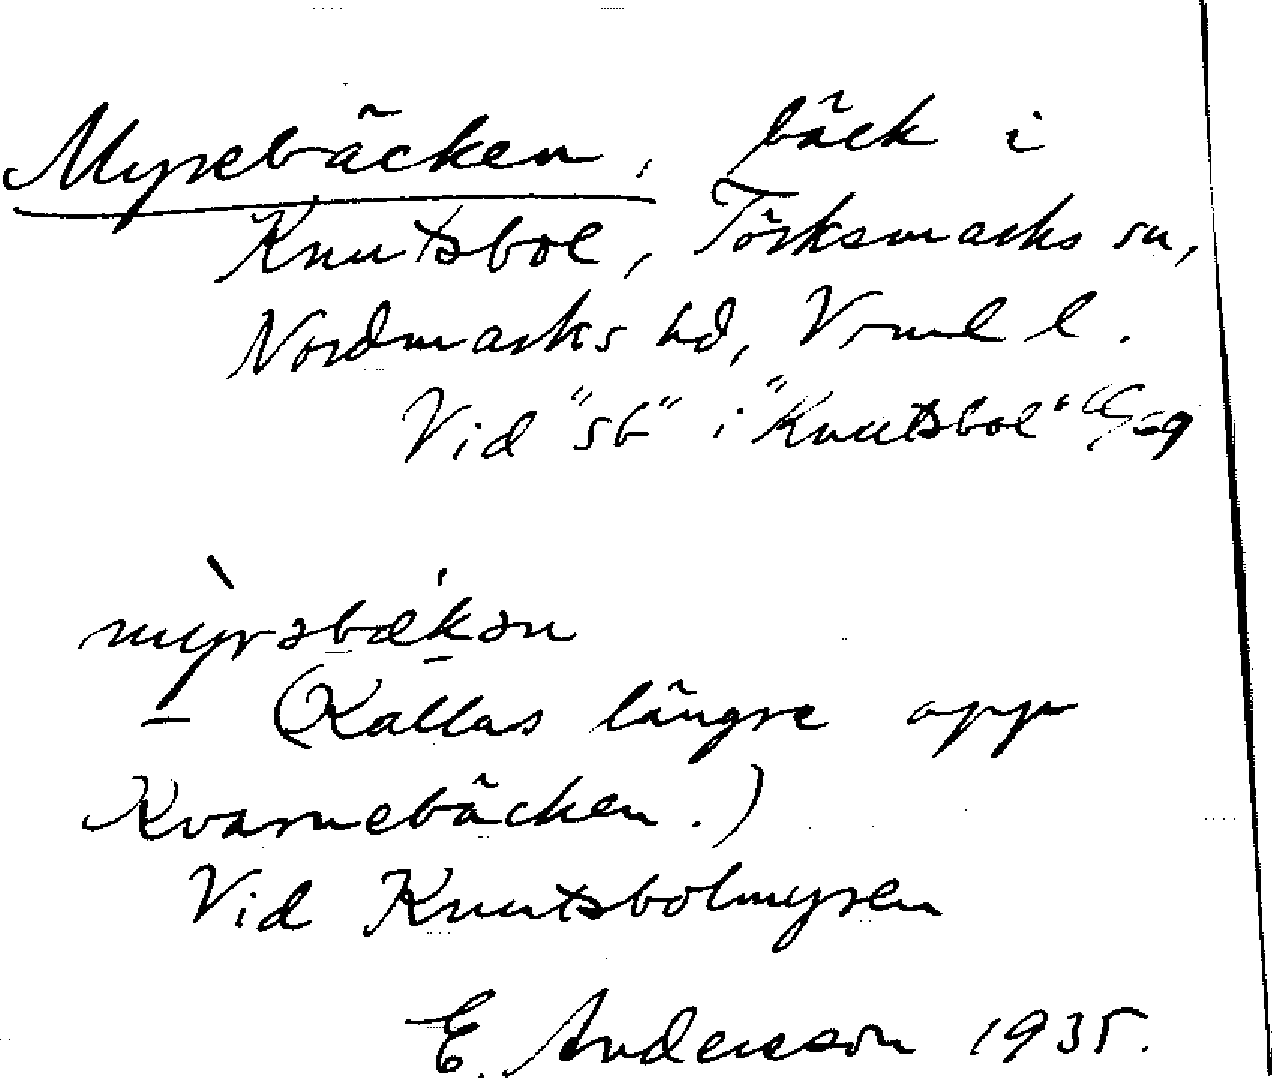 Myrebäcken, bäck i
Knutsbol, Törksmarks sn,
Nordmarks hd, Vrml l.
Vid "sb" i "Knutsbol"
mỳrəbækən
– (Kallas längre opp
Kvarnebäcken.)
Vid Knutsbolmyren
E. Andersson 1935.